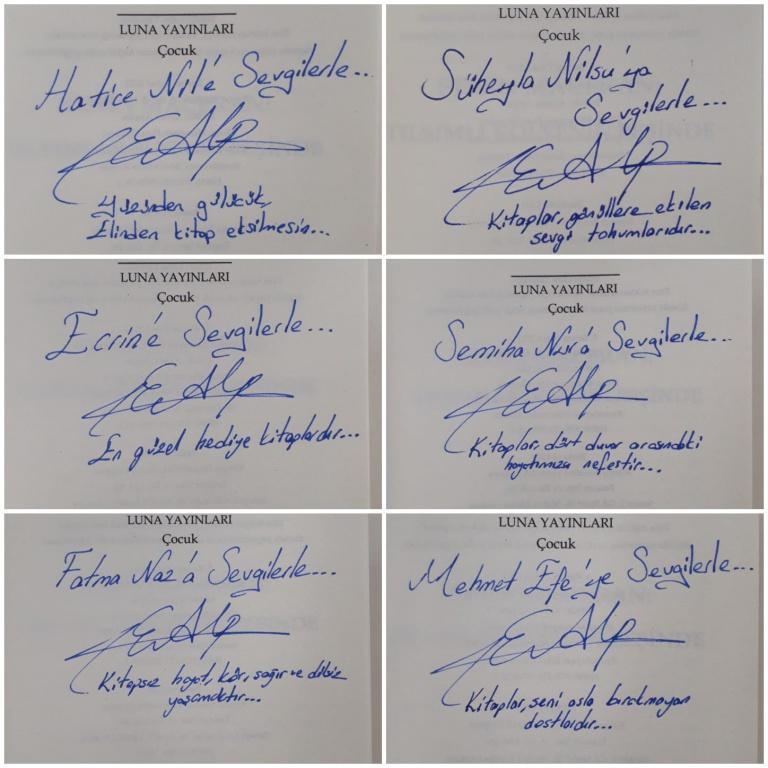 LUNA YAYINLARI
Çocuk
Hatice Nil'e Sevgilerle...
EAlp
Yüzünden gülücük,
Elinden kitap eksilmesin...
LUNA YAYINLARI
Çocuk
Süheyla Nilsu'ya
Sevgilerle...
EAlp
Kitaplar, gönüllere ekilen
sevgi tohumlarıdır...
LUNA YAYINLARI
Çocuk
Ecrin'e Sevgilerle...
EAlp
En güzel hediye kitaplardır...
LUNA YAYINLARI
Çocuk
Semiha Nur'a Sevgilerle...
EAlp
Kitaplar, dört duvar arasındaki
hayatımıza nefestir...
LUNA YAYINLARI
Çocuk
Fatma Naz'a Sevgilerle...
EAlp
Kitapsız hayat, kör, sağır ve dilsiz
yaşamaktır...
LUNA YAYINLARI
Çocuk
Mehmet Efe'ye Sevgilerle...
EAlp
Kitaplar, seni asla bırakmayan
dostlardır...